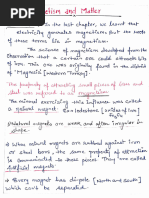 Magnetism and Matter
In the last chapter, we learnt that
electricity generates magnetism but the roots
of these terms lie in magnetism.
The science of magnetism developed from the
observation that a certain ore could attracts bits
of iron. This ore was originally found in the district
of "Magnesia [Western Turkey]".
The property of attracting small pieces of iron and
steel was named as magnetism.
The mineral exercising this influence was called
a natural magnet.
Natural magnets are weak and often irregular in
shape.
⇒ When natural magnets are rubbed against iron
or steel bar, the same property of attraction
is communicated to these pieces. They are called
artificial magnets.
⇒ Every magnet has dipole [North and South]
which can't be seperated.